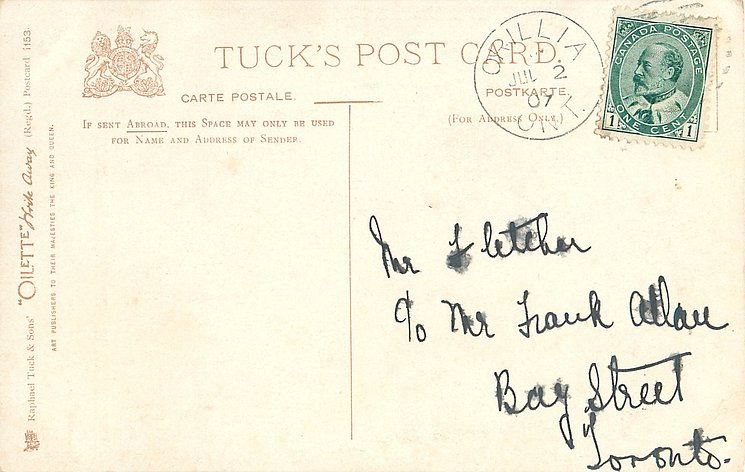 TUCK'S POST CARD.
CARTE POSTALE.
POSTKARTE.
IF SENT ABROAD, THIS SPACE MAY ONLY BE USED
FOR NAME AND ADDRESS OF SENDER.
(FOR ADDRESS ONLY.)
ORILLIA
JUL 2
07
ONT.
CANADA POSTAGE
1 ONE CENT 1
Mr Fletcher
c/o Mr Frank Allan
Bay Street
Toronto.
Raphael Tuck & Sons' "OILETTE" Write Away (Regd.) Postcard 1153.
ART PUBLISHERS TO THEIR MAJESTIES THE KING AND QUEEN.